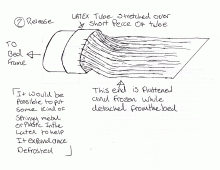 ② Release.
LATEX Tube Stretched over
Short Peice Of tube
TO
Bed
Frame
This end is flattened
and frozen while
detached from the bed
It would be
Possible to put
Some kind of
Springy metal
or Plastic in the
Latex to help
It expand once
Defrosted